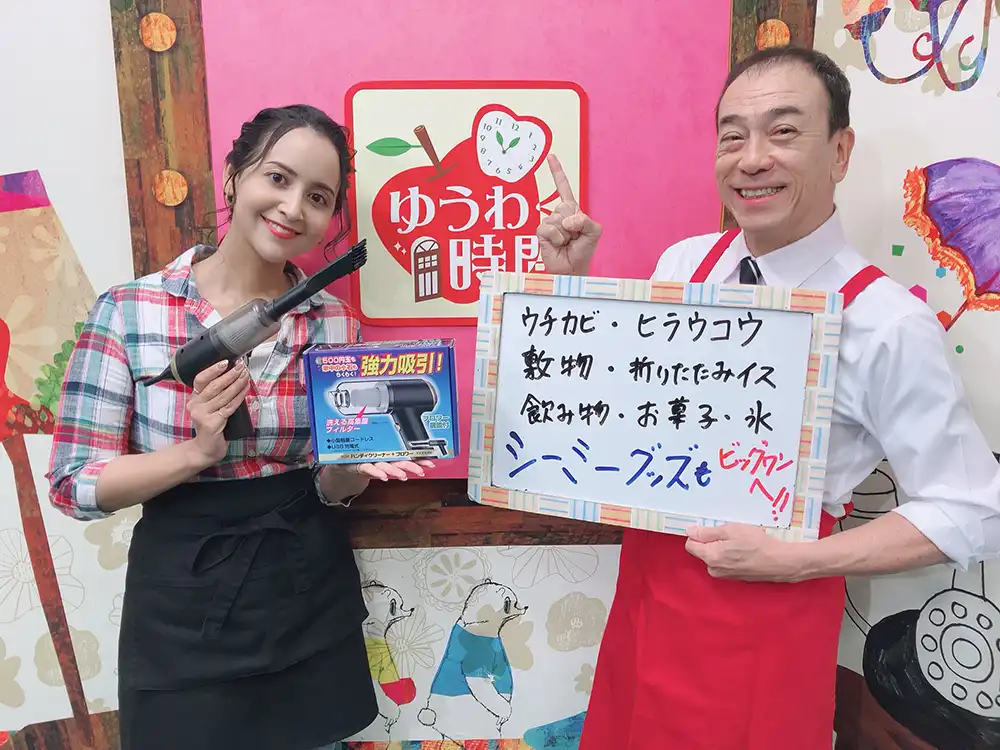 ゆうわく
時間
12
1
2
3
4
5
6
7
8
9
10
11
ウチカビ・ヒラウコウ
敷物・折りたたみイス
飲み物・お菓子・氷
シーミーグッズも ビッグワンへ!!
500円玉も
らくらく!
強力吸引!
洗える高集塵
フィルター
ブロワー
機能付
◆小型軽量コードレス
◆USB充電式
ハンディクリーナー+ブロワー